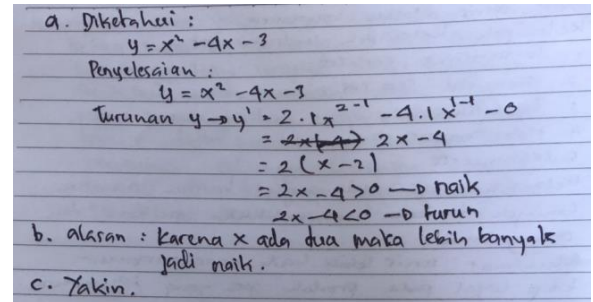 a. Diketahui :
y = x² - 4x - 3
Penyelesaian :
y = x² - 4x - 3
Turunan y → y' = 2.1x²⁻¹ - 4.1x¹⁻¹ - 0
= 2x - 4
= 2(x-2)
= 2x - 4 > 0 → naik
2x - 4 < 0 → turun
b. alasan : karena x ada dua maka lebih banyak
jadi naik.
c. Yakin.